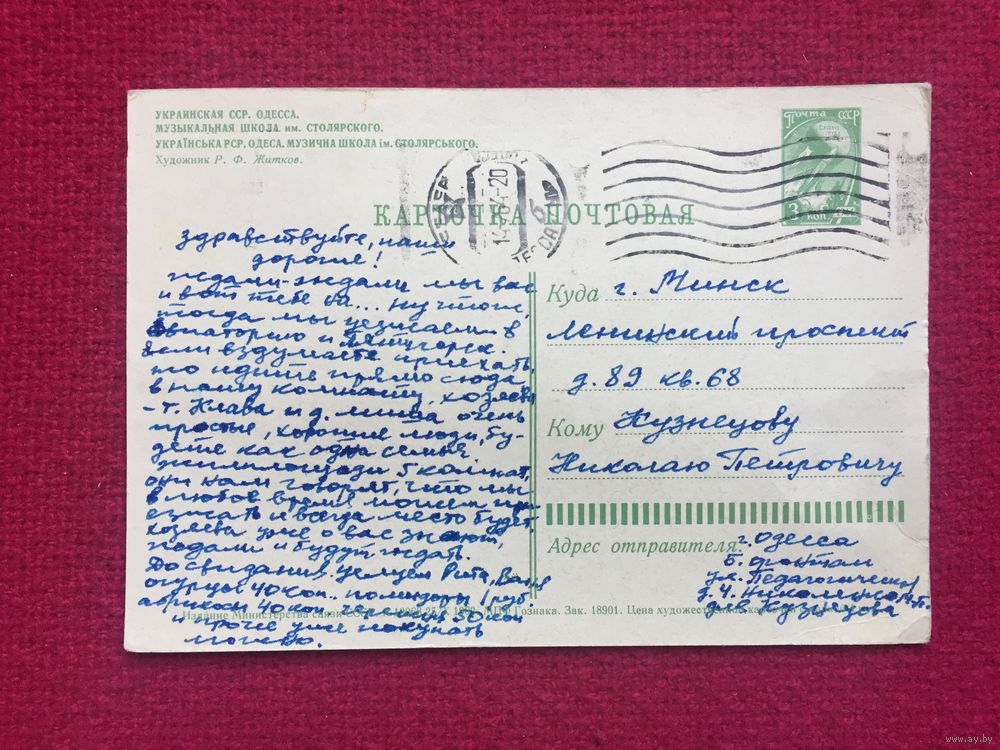 УКРАИНСКАЯ ССР. ОДЕССА.
МУЗЫКАЛЬНАЯ ШКОЛА им. СТОЛЯРСКОГО.
УКРАЇНСЬКА РСР. ОДЕСА. МУЗИЧНА ШКОЛА ім. СТОЛЯРСЬКОГО.
Художник Р. Ф. Житков.
ПОЧТА СССР
3 КОП
КАРТОЧКА ПОЧТОВАЯ
Здравствуйте, наши
дорогие!
Ждали-ждали мы вас
и вот тебе на... Ну что ж,
тогда мы уезжаем в
Евпаторию и Пятигорск.
Если вздумаете приехать,
то идите прямо сюда
в нашу комнату, хозяева
- т. Клава и д. Миша очень
простые, хорошие люди, бу-
дете как одна семья.
Жилплощади 5 комнат,
они нам говорят, что мы
в любое время можем при-
езжать и всегда место будет
хозяева уже о вас знают,
ждали и будут ждать.
До свидания. Целуем Рита, Ваня
огурцы 40 коп., помидоры 1 руб
абрикосы 40 коп. 50 коп
и тоже уже покупать
можно.
Куда г. Минск
Ленинский проспект
д. 89 кв. 68
Кому Кузнецову
Николаю Петровичу
Адрес отправителя: г. Одесса
Б. Фонтан
ул. Педагогическая
д. 4. Николенко
для Кузнецова
Издание Министерства связи СССР. Гознака. Зак. 18901. Цена художественной
www.ay.by